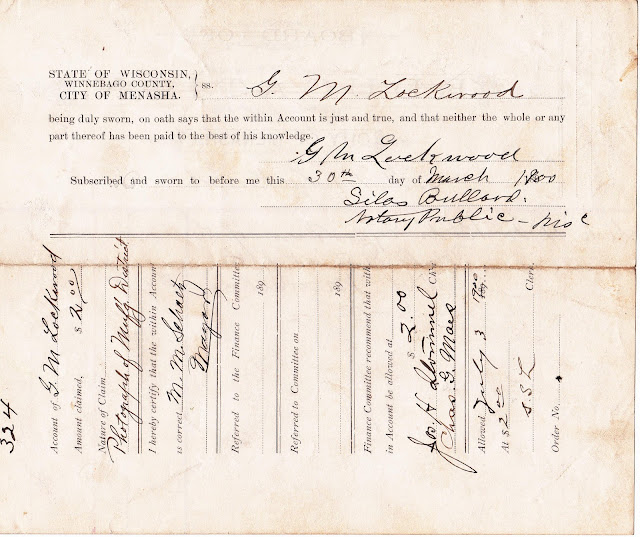 STATE OF WISCONSIN,
WINNEBAGO COUNTY,
CITY OF MENASHA.
ss.
G. M. Lockwood
being duly sworn, on oath says that the within Account is just and true, and that neither the whole or any
part thereof has been paid to the best of his knowledge.
G M Lockwood
Subscribed and sworn to before me this 30th day of March 1900
Silas Bullard.
Notary Public - Wisc
324
Account of G. M Lockwood
Amount claimed, $ 2.00
Nature of Claim
Photograph of Nuff District
I hereby certify that the within Account
is correct M. M Schoetz
Mayor
Referred to the Finance Committee
189
Referred to Committee on
189
Finance Committee recommend that with-
in Account be allowed at
$ 2.00
Jos. H
Chas. G. Maes
Allowed July 3
At $ 2.00
Clerk.
Order No.